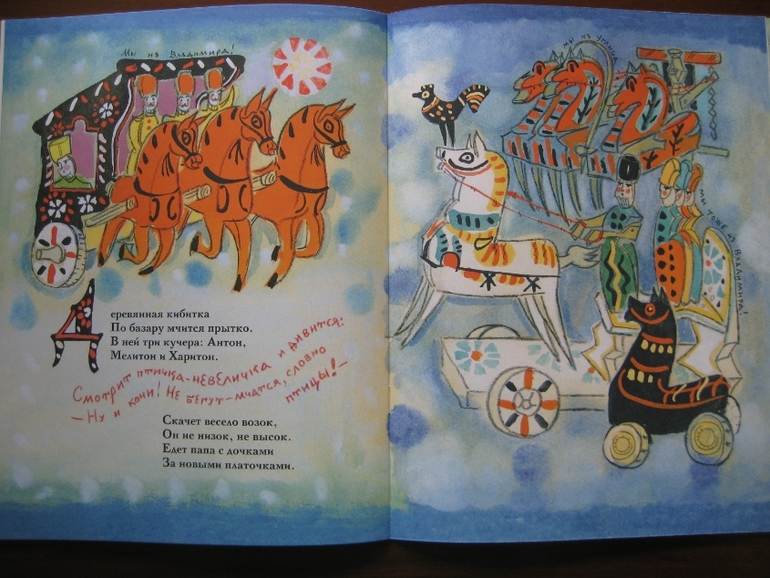 Мы из Владимира!
Деревянная кибитка
По базару мчится прытко.
В ней три кучера: Антон,
Мелитон и Харитон.
Смотрит птичка-невеличка и дивится:
— Ну и кони! Не бегут – мчатся, словно
птицы! —
Скачет весело возок,
Он не низок, не высок.
Едет папа с дочками
За новыми платочками.
Мы из
Мы тоже из Владимира!